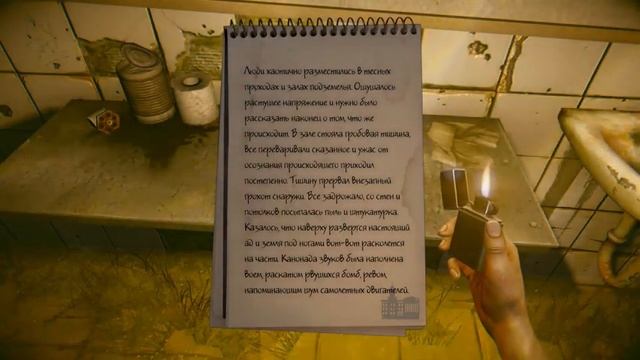 Люди хаотично разместились в тесных
проходах и залах подземелья. Ощущалось
растущее напряжение и нужно было
рассказать наконец о том, что же
происходит. В зале стояла гробовая тишина,
все переваривали сказанное и ужас от
осознания происходящего приходил
постепенно. Тишину прервал внезапный
грохот снаружи. Все задрожало, со стен и
потолков посыпалась пыль и штукатурка.
Казалось, что наверху развергся настоящий
ад и земля под ногами вот-вот расколется
на части. Канонада звуков была наполнена
воем, раскатом рвущихся бомб, ревом,
напоминающим шум самолетных двигателей.